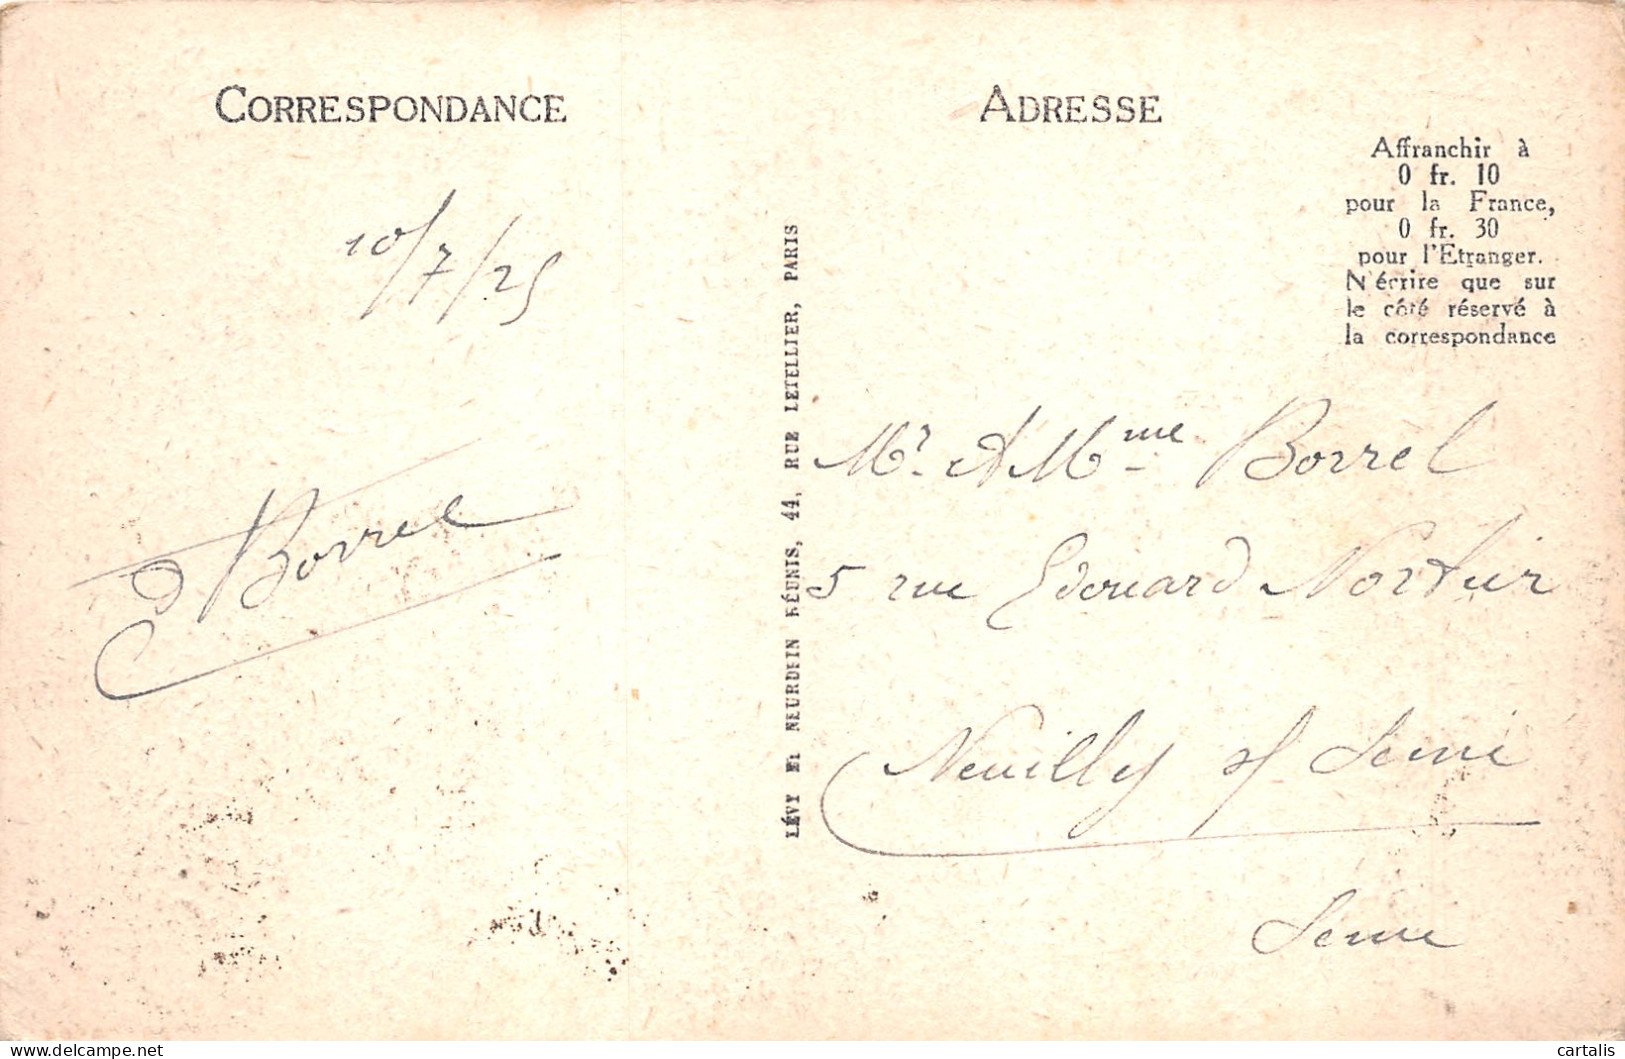 CORRESPONDANCE
10/7/25
Borrel
LÉVY ET NEURDEIN RÉUNIS, 44, RUE LETELLIER, PARIS
ADRESSE
Affranchir à
0 fr. 10
pour la France,
0 fr. 30
pour l'Etranger.
N'écrire que sur
le côté réservé à
la correspondance
Mr. & Mme Borrel
5 rue Edouard Nortier
Neuilly s/ Seine
Seine
www.delcampe.net
cartalis